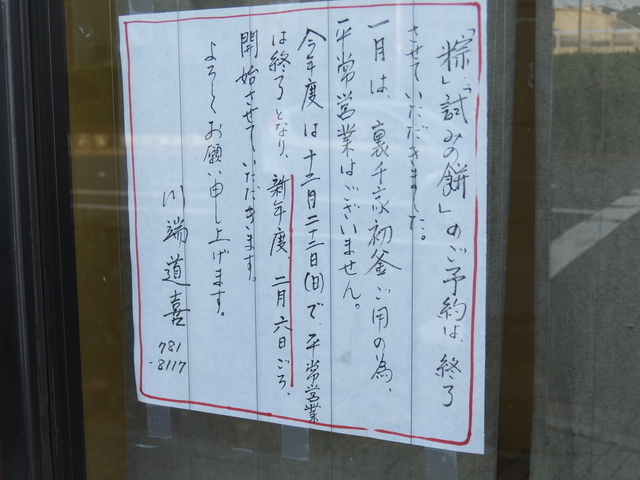 「粽」・「試みの餅」のご予約は、終了
させていただきました。
一月は、裏千家初釜ご用の為、
平常営業はございません。
今年度は十二月二十二日(日)で、平常営業
は終了となり、新年度、二月六日ごろ、
開始させていただきます。
よろしくお願い申し上げます。
川端道喜
781
-8117